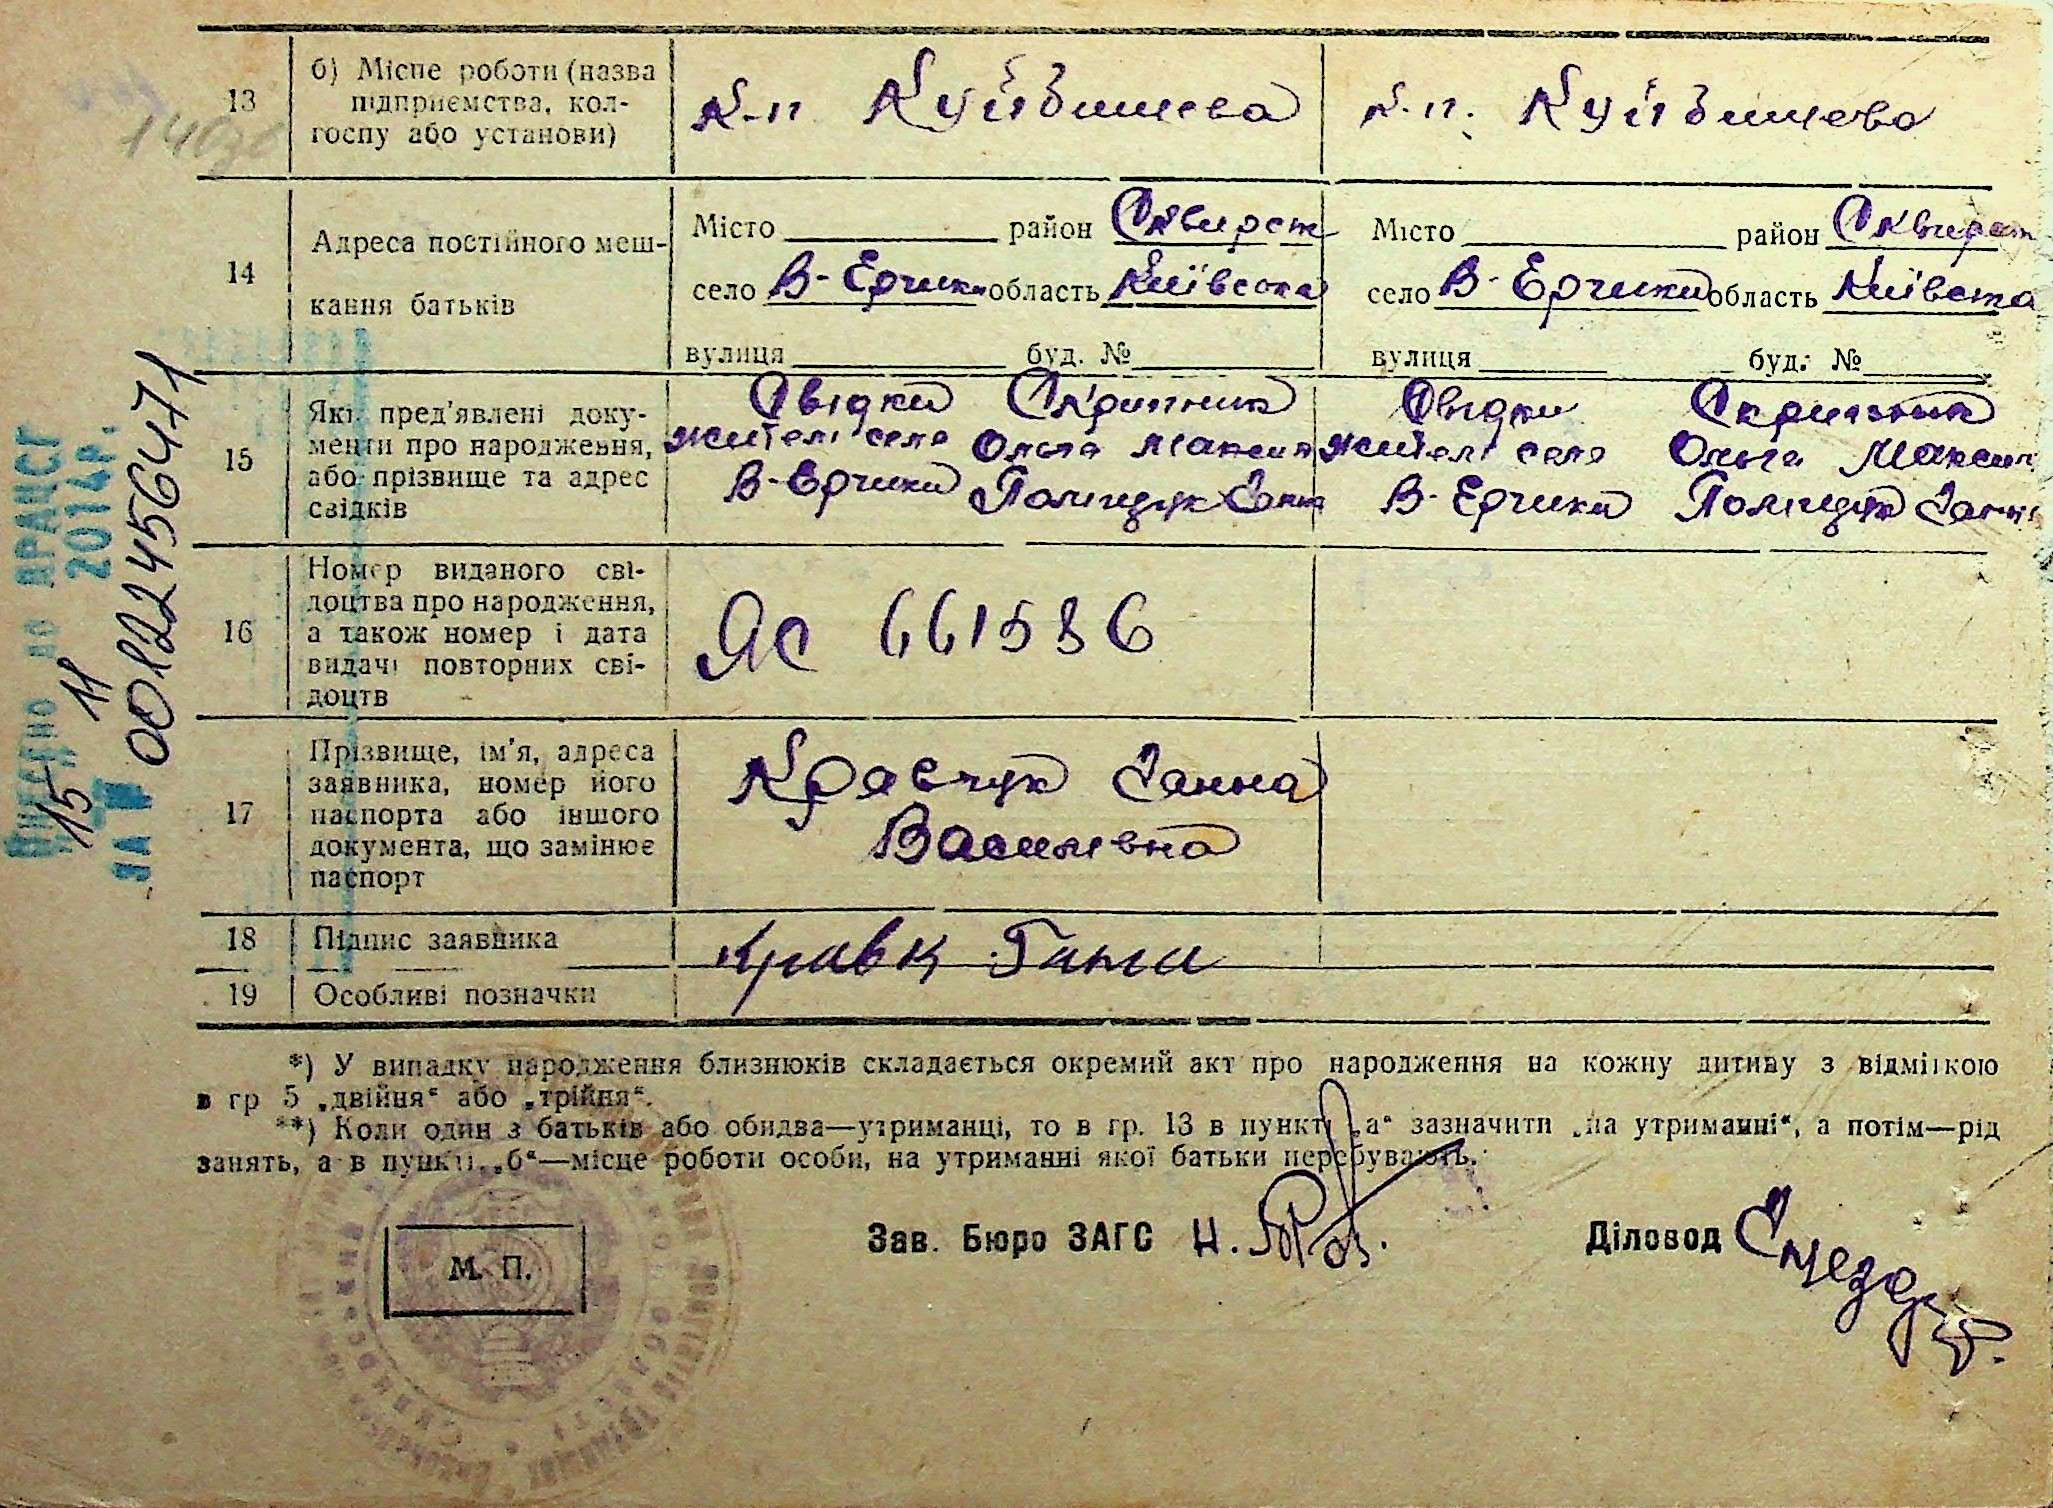 13 б) Місце роботи (назва підприємства, колгоспу або установи) к-п Куйбишева к.-п. Куйбишева
14 Адреса постійного мешкання батьків
Місто район Сквирськ
село В-Єрчики область Київська
вулиця буд. №
Місто район Сквирськ
село В-Єрчики область Київська
вулиця буд. №
15 Які пред'явлені документи про народження, або прізвище та адрес свідків
Свідки Скрипник
жителі села Ольга Максим
В-Єрчики Поліщук Ганн
Свідки Скрипник
жителі села Ольга Максим
В-Єрчики Поліщук Ганн
16 Номер виданого свідоцтва про народження, а також номер і дата видачі повторних свідоцтв
ЯС 661586
17 Прізвище, ім'я, адреса заявника, номер його паспорта або іншого документа, що замінює паспорт
Кравчук Ганна
Василівна
18 Підпис заявника
19 Особливі позначки
*) У випадку народження близнюків складається окремий акт про народження на кожну дитину з відміткою
в гр 5 „двійня“ або „трійня“.
**) Коли один з батьків або обидва—утриманці, то в гр. 13 в пункті „а“ зазначити „на утриманні“, а потім—рід
занять, а в пункті „б“—місце роботи особи, на утриманні якої батьки перебувають.
М. П.
Зав. Бюро ЗАГС
Діловод
ДРАЦСГ
15 11 2014р.
ЗА № 00122456471